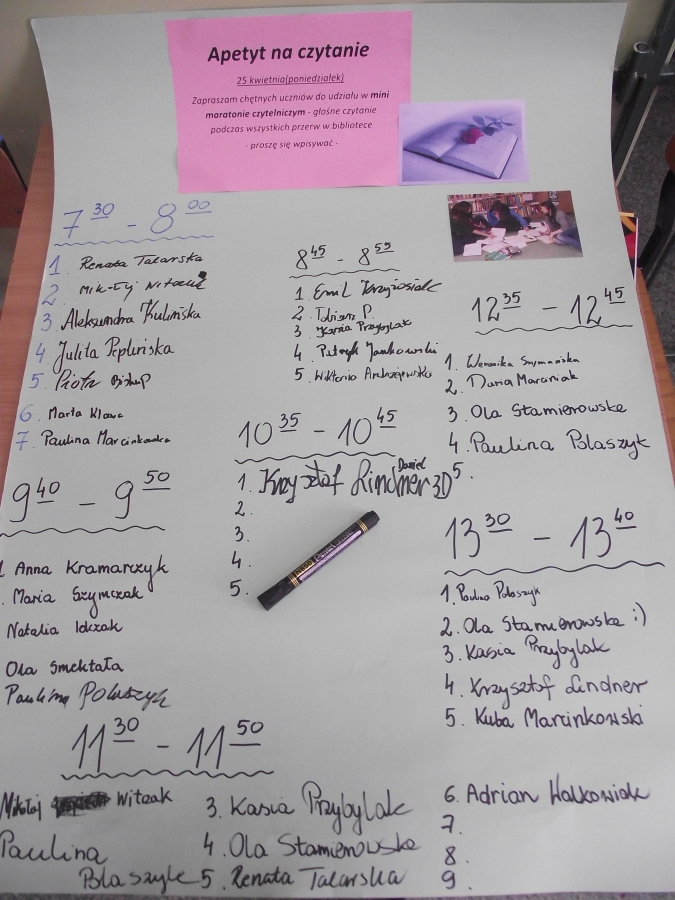 Apetyt na czytanie
25 kwietnia(poniedziałek)
Zapraszam chętnych uczniów do udziału w mini
maratonie czytelniczym - głośne czytanie
podczas wszystkich przerw w bibliotece
- proszę się wpisywać -
7 30 - 8 00
1. Renata Talarska
2. Witczak
3 Aleksandra Kulińska
4 Julita Peplińska
5. Piotr Biskup
6. Marta Klawe
7. Paulina Marcinkowska
8 45 - 8 55
1. Emil Krzyżosiak
2. Tobiasz P.
3. Kasia Przybylak
4. Patryk Jankowski
5. Wiktoria Andrzejewska
12 35 - 12 45
1. Weronika Szymańska
2. Daria Marciniak
3. Ola Stamierowska
4. Paulina Polaszyk
5.
9 40 - 9 50
1 Anna Kramarczyk
. Maria Szymczak
Natalia Idczak
Ola Smektała
Paulina Polaszyk
10 35 - 10 45
Daniel
1. Krzysztof Lindner 3D
2.
3.
4.
5.
13 30 - 13 40
1. Paulina Polaszyk
2. Ola Stamierowska :)
3. Kasia Przybylak
4. Krzysztof Lindner
5. Kuba Marcinkowski
11 30 - 11 50
Mikołaj Witczak
Paulina
Polaszyk
3. Kasia Przybylak
4. Ola Stamierowska
5. Renata Talarska
6. Adrian Walkowiak
7.
8.
9.